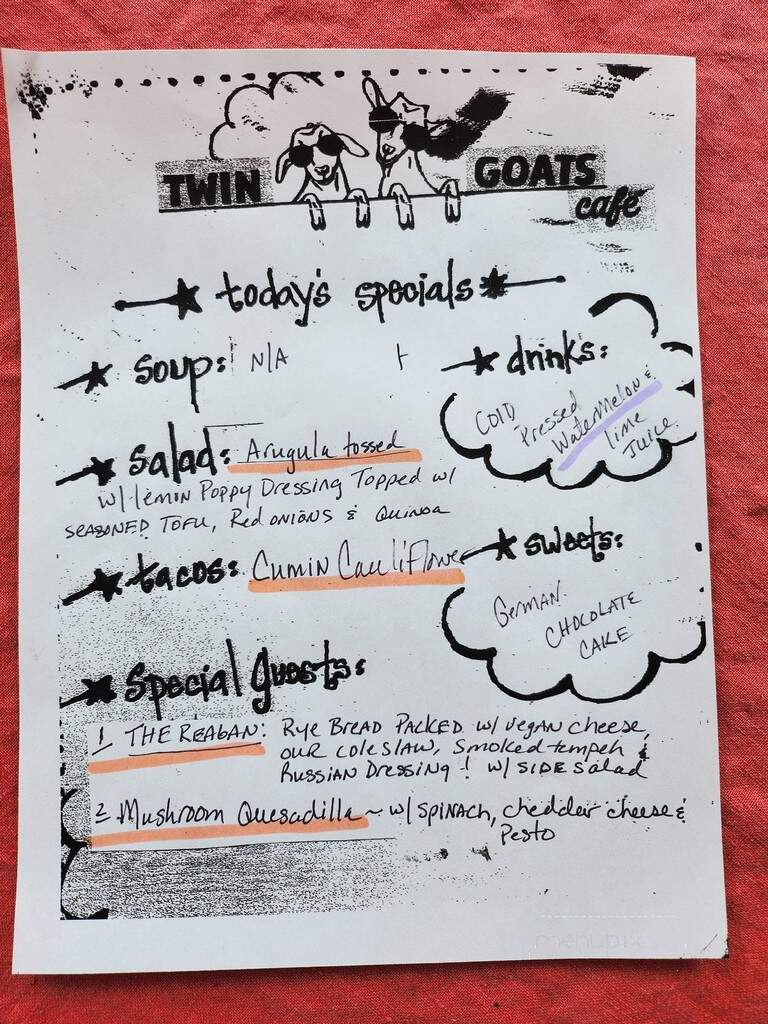 TWIN GOATS
café
today's specials
soup: N/A
drinks:
COLD Pressed
Watermelon &
lime
Juice
salad: Arugula tossed
w/ lemon Poppy Dressing Topped w/
SEASONED TOFU, Red onions & Quinoa
tacos: Cumin Cauliflower
sweets:
German
CHOCOLATE
CAKE
special guests:
1 THE REAGAN: Rye Bread Packed w/ vegan cheese,
our coleslaw, smoked tempeh &
Russian Dressing! w/ SIDE salad
2 Mushroom Quesadilla ~ w/ SPINACH, cheddar cheese &
Pesto
menupix